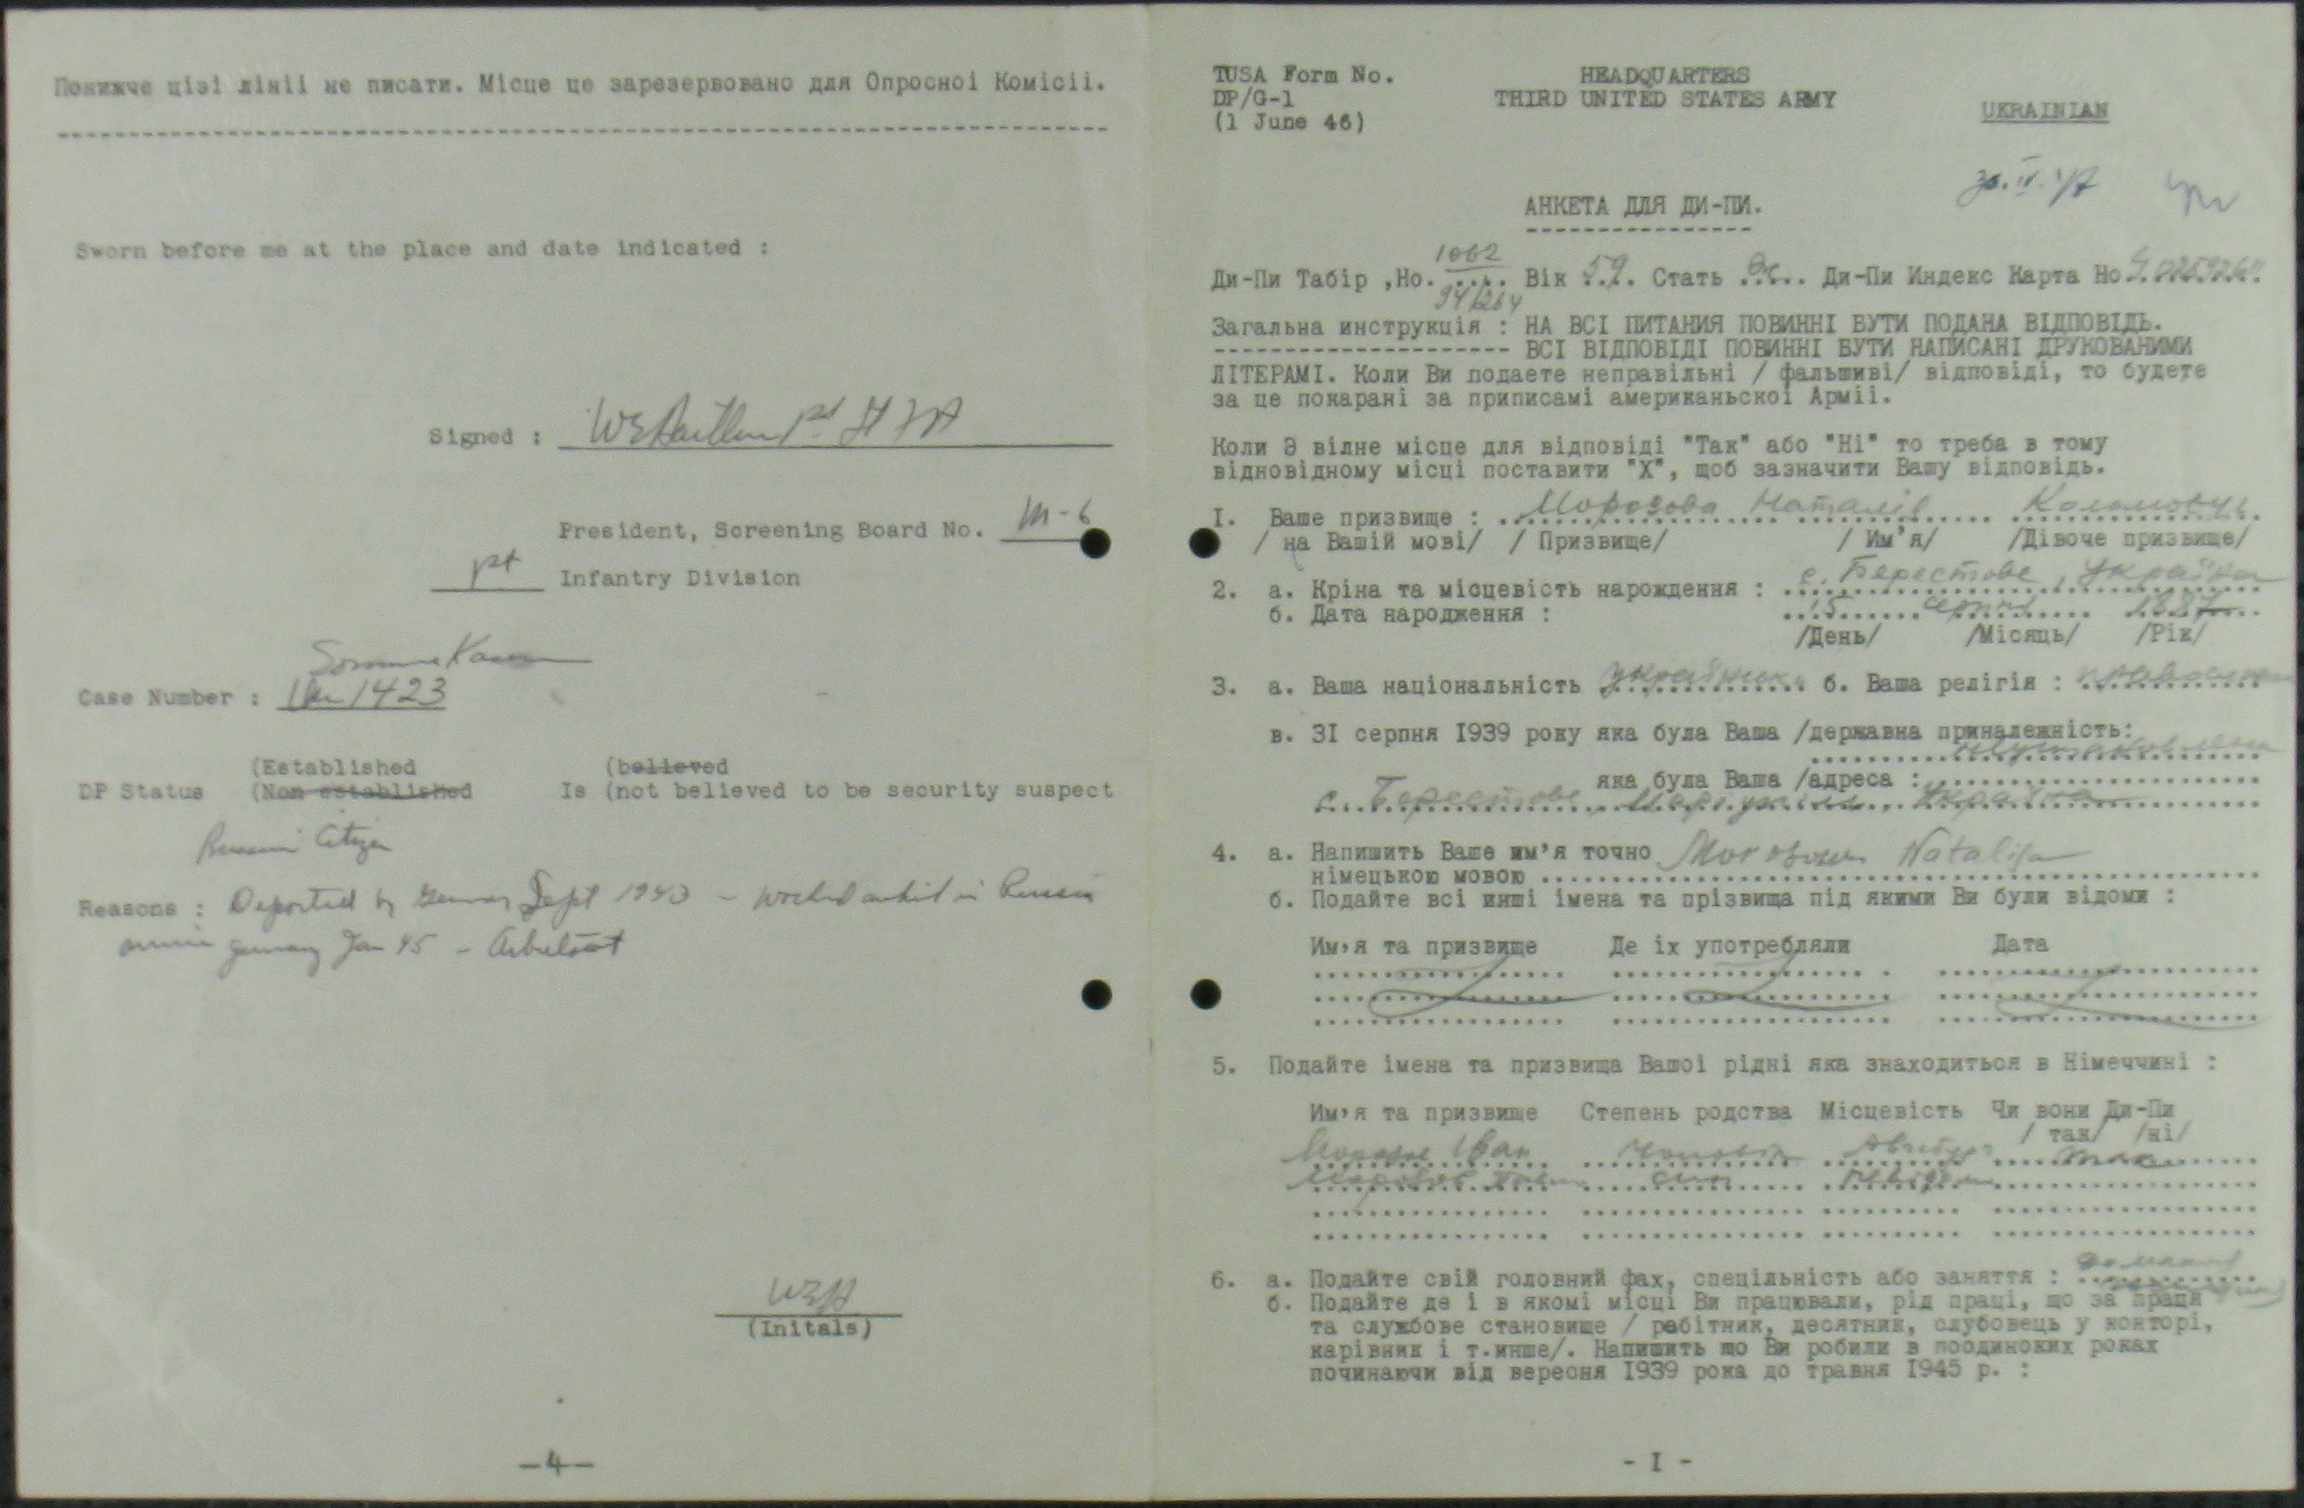 Понижче цізі лінії не писати. Місце це зарезервовано для Опросноі Комісіі.
Sworn before me at the place and date indicated :
Signed :
President, Screening Board No. M-6
1st Infantry Division
Case Number : 1423
(Established (believed
DP Status (Non established Is (not believed to be security suspect
Russian Citizen
Reasons : Deported by Germans Sept 1943 – worked in Russia
Germany Jan 45 –
WEH
(Initals)
—4—
TUSA Form No. HEADQUARTERS
DP/G-1 THIRD UNITED STATES ARMY
(1 June 46) UKRAINIAN
АНКЕТА ДЛЯ ДИ-ПИ.
1062
Ди-Пи Табір ,Но. .... Вік 59. Стать ж... Ди-Пи Индекс Карта Но
94/264
Загальна инструкція : НА ВСІ ПИТАНИЯ ПОВИННІ БУТИ ПОДАНА ВІДПОВІДЬ.
ВСІ ВІДПОВІДІ ПОВИННІ БУТИ НАПИСАНІ ДРУКОВАНИМИ
ЛІТЕРАМІ. Коли Ви подаете неправільні / фальшиві/ відповіді, то будете
за це покарані за приписамі американьскоі Арміі.
Коли Э вілне місце для відповіді "Так" або "Ні" то треба в тому
відновідному місці поставити "Х", щоб зазначити Вашу відповідь.
I. Ваше призвище : Морозова Наталія
/ на Вашій мові/ / Призвище/ / Им'я/ /Дівоче призвище/
2. а. Кріна та місцевість нарождения : с. Берестове, Україна
б. Дата народження : 15 серпня 1887
/День/ /Місяць/ /Рік/
3. а. Ваша національність українка б. Ваша релігія : православна
в. ЗІ серпня І939 року яка була Ваша /державна приналежність:
яка була Ваша /адреса :
с. Берестове, Маріуполь, Україна
4. а. Напишить Ваше им'я точно Morosowa Natalija
німецькою мовою
б. Подайте всі инші імена та прізвища під якими Ви були відоми :
Им'я та призвище Де іх употребляли Дата
5. Подайте імена та призвища Вашоі рідні яка знаходиться в Німеччині :
Им'я та призвище Степень родства Місцевість Чи вони Ди-Пи
/ так/ /ні/
Морозов Іван чоловік так
Морозов син невідомо
6. а. Подайте свій головний фах, спецільність або заняття : домашня
б. Подайте де і в якомі місці Ви працювали, рід праці, що за праця
та службове становище / рабітник, десятник, слубовець у конторі,
карівник і т.инше/. Напишить що Ви робили в поодиноких роках
починаючи від вересня І939 рока до травня І945 р. :
- I -